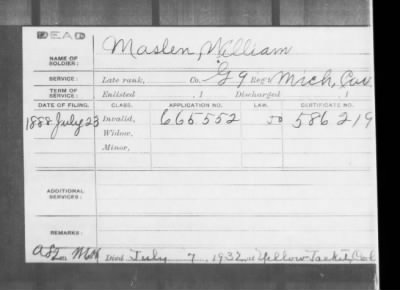 DEAD
NAME OF SOLDIER: Maslen, William
SERVICE: Late rank, Co. G 9 Reg't Mich, Cav
TERM OF SERVICE: Enlisted , 1 Discharged , 1
DATE OF FILING. CLASS. APPLICATION NO. LAW. CERTIFICATE NO.
1888 July 23 Invalid, 665552 586219
Widow,
Minor,
ADDITIONAL SERVICES:
REMARKS:
Died July 7, 1932, at Yellow Jacket, Col